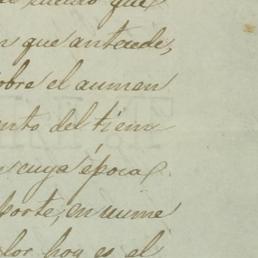 que
n que antecede,
sobre el aumen
ento del tiem
cuya época
porte, en nume
lor hoy es el